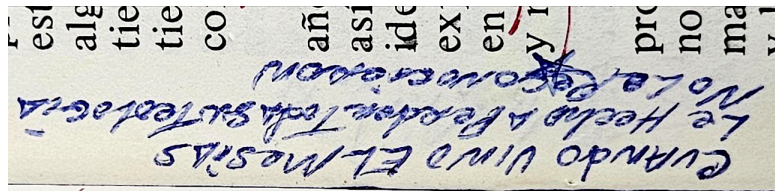 CUANDO VINO EL MESIAS
Le Hecho A PerDer Toda Su Teologia
No Le ReConocieron
est
alg
tie
tie
co
añ
así
ide
ex
en
y
pro
no
ma